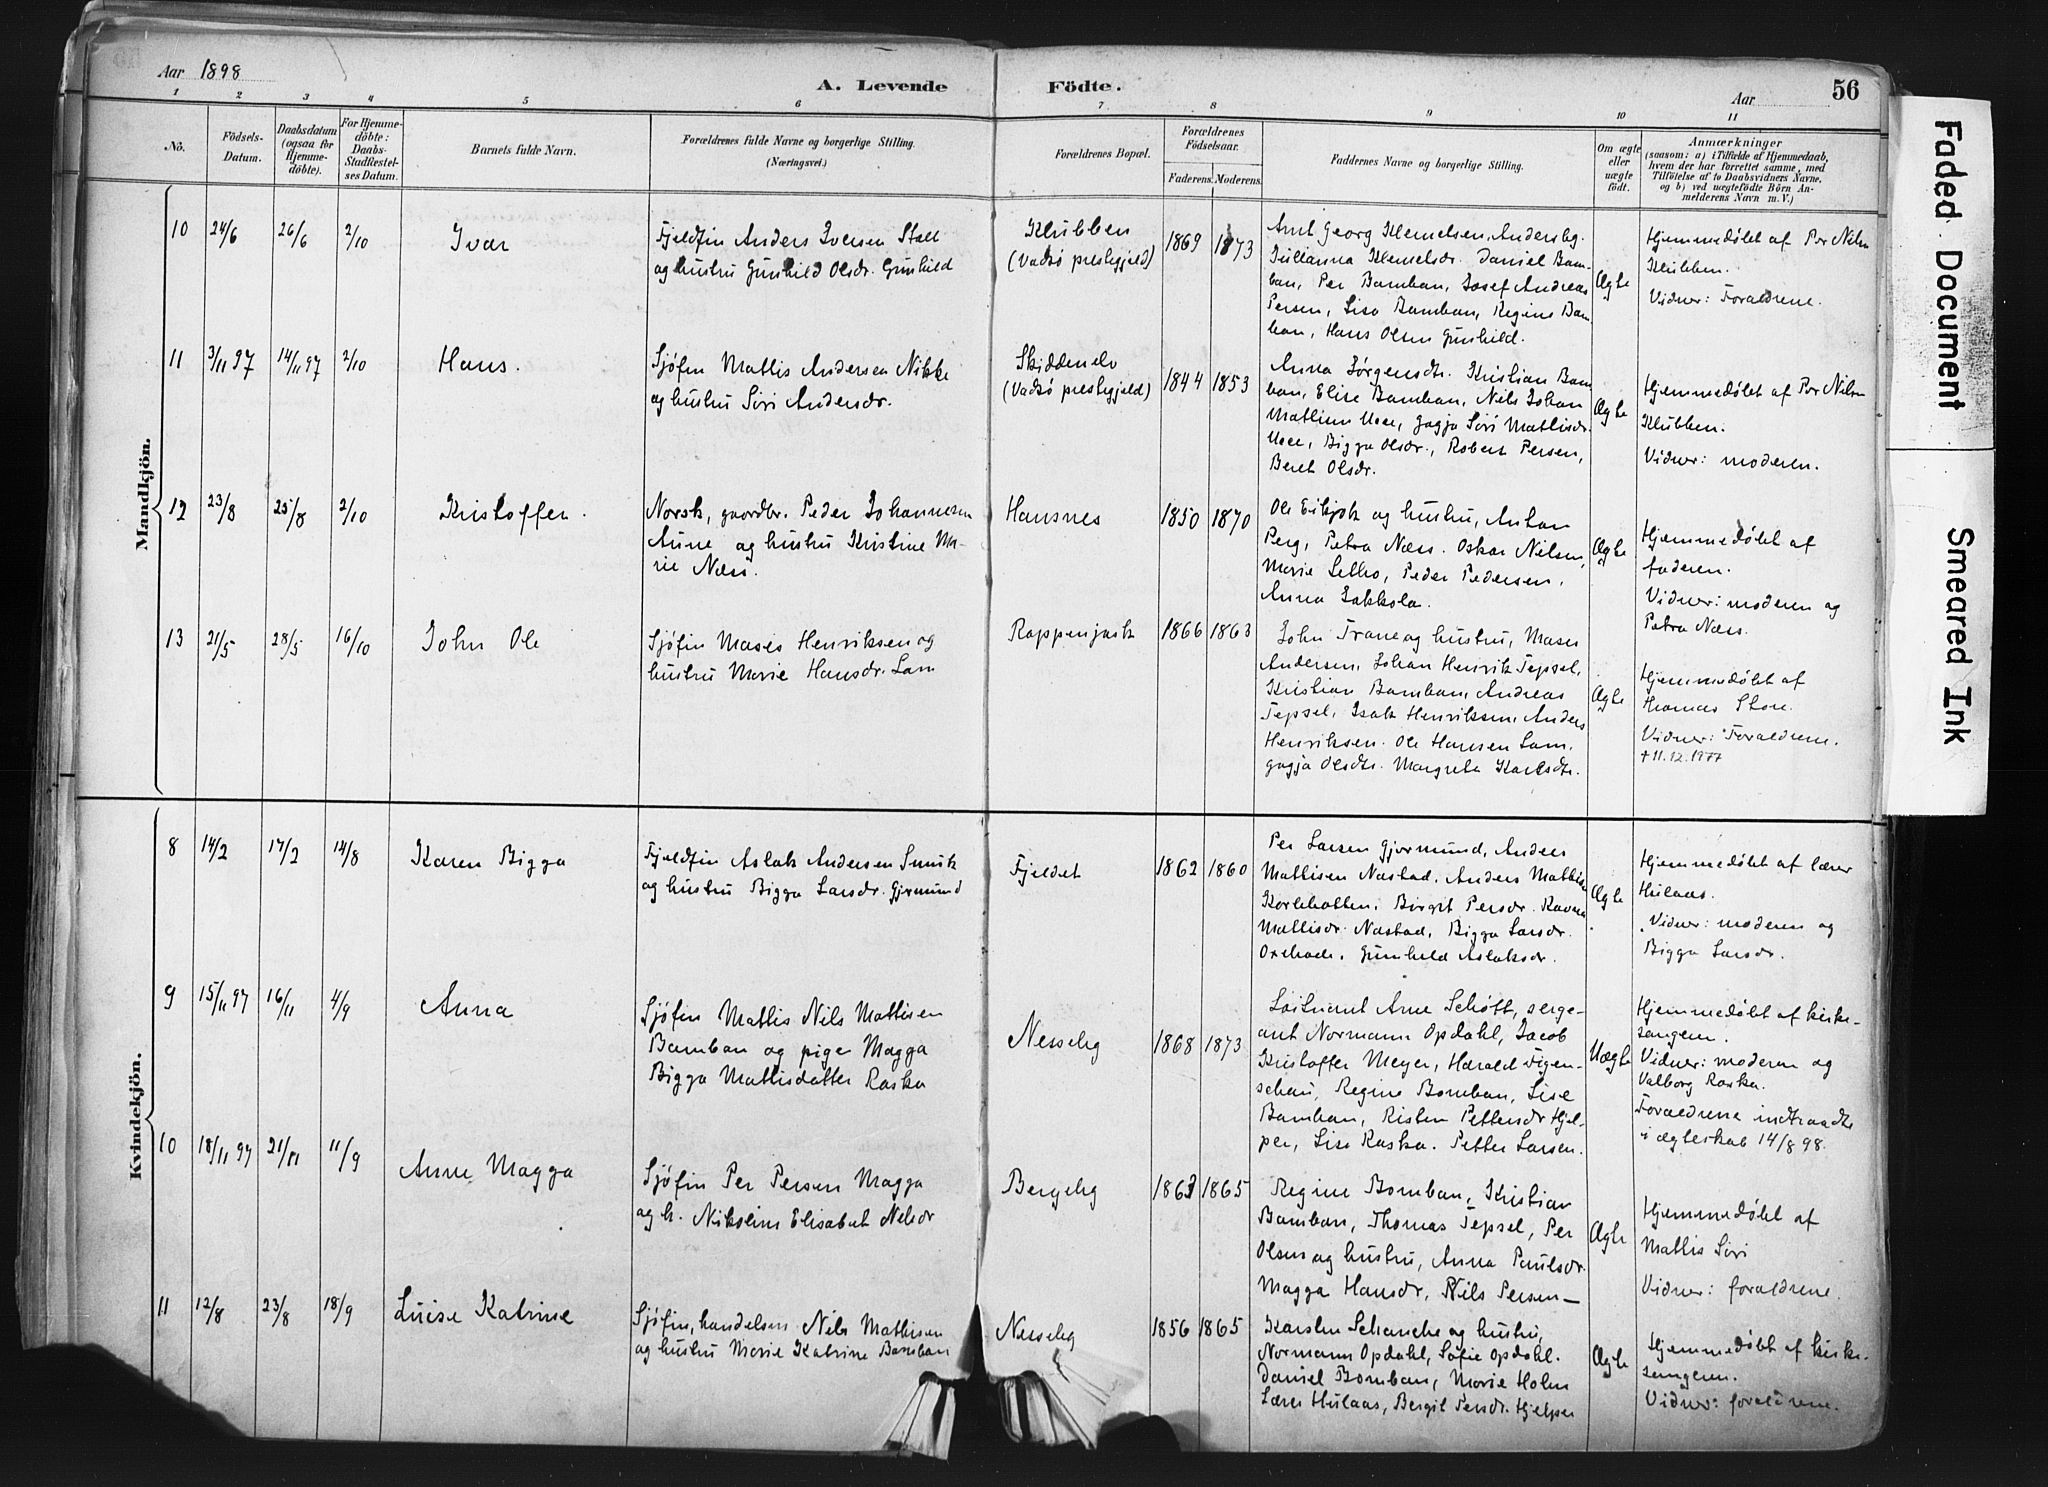 Aar 1898
A. Levende
Födte.
Aar
56
1 2 3 4 5 6 7 8 9 10 11
No.
Födsels-
Datum.
Daabsdatum
(ogsaa for
Hjemme-
döbte).
For Hjemme-
döbte:
Daabs-
Stadfæstel-
ses Datum.
Barnets fulde Navn.
Forældrenes fulde Navne og borgerlige Stilling.
(Næringsvei.)
Forældrenes Bopæl.
Forældrenes
Födselsaar.
Faderens. Moderens.
Faddernes Navne og borgerlige Stilling.
Om ægte
eller
uægte
födt.
Anmærkninger
(saasom: a) i Tilfælde af Hjemmedaab,
hvem der har forrettet samme, med
Tilföielse af to Daabsvidners Navne,
og b) ved uægtefödte Börn An-
melderens Navn m. V.)
Mandkjön.
10 24/6 26/6 2/10 Ivar
Fjeldfin Anders Iversen Stall
og hustru Gunhild Olsdr. Gunhild
Klubben
(Vadsö prestegjeld)
1869 1873
Amt Georg Klemetsen, Andersbg.
Julianna Klemetsdr. Daniel Bam-
ban, Per Bamban, Josef Andreas
Persen, Lisa Bamban, Regine Bam-
ban, Hans Olsen Gunhild.
Ægte
Hjemmedøbt af Per Nilsen
Klubben.
Vidner: Forældrene.
11 3/11 97 14/11 97 2/10 Hans.
Sjøfin Mattis Andersen Nikke
og hustru Siri Andersdr.
Skiddenelv
(Vadsö prestegjeld)
1844 1853
Anna Jörgensdtr. Kristian Bam-
ban, Elise Bamban, Nils Johan
Mathisen, Gagja Siri Mattisdr.
Bigga Olsdr., Robert Persen,
Beret Olsdr.
Ægte
Hjemmedøbt af Per Nilsen
Klubben.
Vidner: moderen.
12 23/8 25/8 2/10 Kristoffer.
Norsk, gaardbr. Peder Johannesen
Aune og hustru Kristine Ma-
rie Næss.
Hansnes
1850 1870
Ole Eikjok og hustru, Anton
Berg, Petra Næss. Oskar Nilsen,
Marie Lethro, Peder Pedersen,
Anna Jakkola.
Ægte
Hjemmedøbt af
faderen.
Vidner: moderen og
Petra Næss.
13 21/5 28/5 16/10 John Ole
Sjøfin Moses Henriksen og
hustru Marie Hansdr. Lam
Roppenjark
1866 1863
John Trane og hustru, Moses
Andersen, Johan Henrik Tepsel,
Kristian Bamban, Andreas
Tepsel, Isak Henriksen, Anders
Henriksen. Ole Hansen Lam.
Gagja Olsdtr. Margreta Karlsdtr.
Ægte
Hjemmedøbt af
Thomas Store.
Vidner: Forældrene.
+ 11.12.1977
Kvindekjön.
8 14/2 17/2 14/8 Karen Bigga
Fjeldfin Aslak Andersen Smuk
og hustru Bigga Larsdr. Gjermund
Fjeldet
1862 1860
Per Larsen Gjermund, Anders
Mathisen Næstad. Anders Mathis
Birgit Persdr. Ravna
Mattisdr. Næstad, Bigga Larsdr.
Gunhild Aslaksdr.
Ægte
Hjemmedøbt af lærer
Hulaas.
Vidner: moderen og
Bigga Larsdr.
9 15/11 97 16/11 4/9 Anna
Sjøfin Mattis Nils Mattisen
Bamban og pige Magga
Bigga Mattisdatter Raska
Nesseby
1868 1873
Løitnant Arne Schøtt, serge-
ant Normann Opdahl, Jacob
Kristoffer Meyer, Harald Figen-
schau, Regine Bomban, Lise
Bamban, Risten Pettersdr Hjel-
per, Lise Raska. Petter Larsen.
Uægte
Hjemmedøbt af kirke-
sangeren.
Vidner: moderen og
Valborg Raska.
Forældrene indtraadte
i ægteskab 14/8 98.
10 18/11 97 21/11 11/9 Anne Magga
Sjøfin Per Persen Magga
og h. Nikoline Elisabet Nilsdr
Bergeby
1863 1865
Regine Bomban, Kristian
Bamban, Thomas Tepsel, Per
Olsen og hustru, Anna Paulsdr.
Magga Hansdr, Nils Persen—
Ægte
Hjemmedøbt af
Mattis Siri
Vidner: forældrene.
11 12/8 23/8 18/9 Luise Katrine
Sjøfin, handelsm. Nils Mathisen
og hustru Marie Katrine Bamban
Nesseby
1856 1865
Karsten Schanche og hustru,
Normann Opdahl, Sofie Opdahl.
Daniel Bomban, Marie Holm
Lærer Hulaas, Bergit Persdr. Hjelper
Ægte
Hjemmedøbt af kirke-
sangeren.
Vidner: forældrene.
Faded Document
Smeared Ink